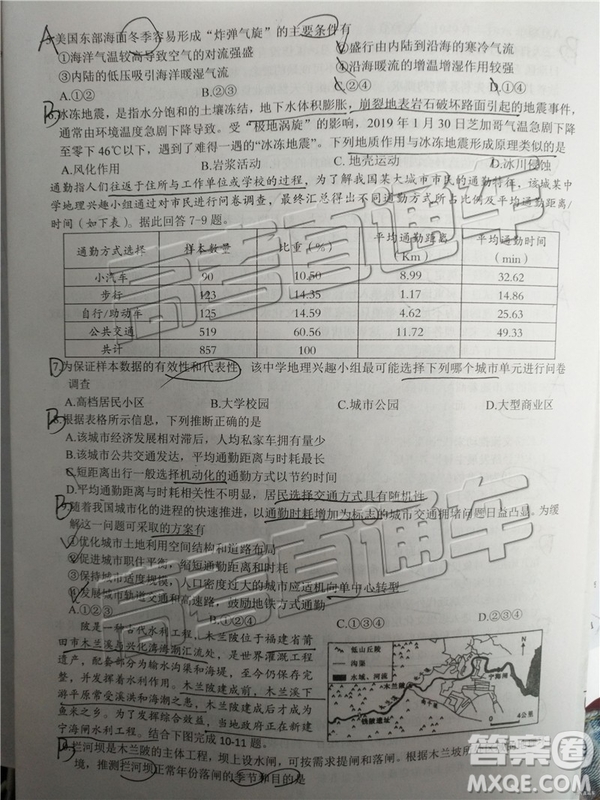 A 5.美国东部海面冬季容易形成“炸弹气旋”的主要条件有
①海洋气温较高导致空气的对流强盛 ②盛行由内陆到沿海的寒冷气流
③内陆的低压吸引海洋暖湿气流 ④沿海暖流的增温增湿作用较强
A.①② B.②③ C.②④ D.①④
B 冰冻地震，是指水分饱和的土壤冻结，地下水体积膨胀，崩裂地表岩石破坏路面引起的地震事件，
通常由环境温度急剧下降导致。受“极地涡旋”的影响，2019年1月30日芝加哥气温急剧下降
至零下46℃以下，遇到了难得一遇的“冰冻地震”。下列地质作用与冰冻地震形成原理类似的是
A.风化作用 B.岩浆活动 C.地壳运动 D.冰川侵蚀
通勤指人们往返于住所与工作单位或学校的过程，为了解我国某大城市市民的通勤特征，该城某中
学地理兴趣小组通过对市民进行问卷调查，最终汇总得出不同通勤方式所占比例及平均通勤距离/
时间（如下表）。据此回答7-9题。
通勤方式选择 样本数量 比重（%） 平均通勤距离（Km） 平均通勤时间（min）
小汽车 90 10.50 8.99 32.62
步行 123 14.35 1.17 14.86
自行/助动车 125 14.59 4.62 25.63
公共交通 519 60.56 11.72 49.33
共计 857 100
7.为保证样本数据的有效性和代表性，该中学地理兴趣小组最可能选择下列哪个城市单元进行问卷
调查
A.高档居民小区 B.大学校园 C.城市公园 D.大型商业区
B 8.根据表格所示信息，下列推断正确的是
A.该城市经济发展相对滞后，人均私家车拥有量少
B.该城市公共交通发达，平均通勤距离与时耗最长
C.短距离出行一般选择机动化的通勤方式以节约时间
D.平均通勤距离与时耗相关性不明显，居民选择交通方式具有随机性
B 9.随着我国城市化的进程的快速推进，以通勤时耗增加为标志的城市交通拥堵问题日益凸显，为缓
解这一问题可采取的方案有
①优化城市土地利用空间结构和道路布局
②促进城市职住平衡，缩短通勤距离和时耗
③保持城市适度规模，人口密度过大的城市应适机向单中心转型
④发展城市轨道交通和高速路，鼓励地铁方式通勤
A.①②③ B.①②④ C.①③④ D.②③④
陂是一种古代水利工程，木兰陂位于福建省莆
田市木兰溪与兴化湾海潮汇流处，是世界灌溉工程
遗产，配套部分为输水沟渠和海堤，至今仍保存完
整，并发挥着水利作用。木兰陂建成前，木兰溪下
游平原常受溪洪和海潮之患，木兰陂建成后才成为
鱼米之乡。为了发挥综合效益，当地政府正在新建
宁海闸水利工程。结合下图完成10-11题。
低山丘陵
沟渠
水域、河流
木兰陂
宁海闸
0 4公里
拦河坝是木兰陂的主体工程，坝上设水闸，可按需求提闸和落闸。根据木兰陂
境，推测拦河坝正常年份落闸的季节和目的是
高考直通车
高考直通车
答案圈
MXQE.COM